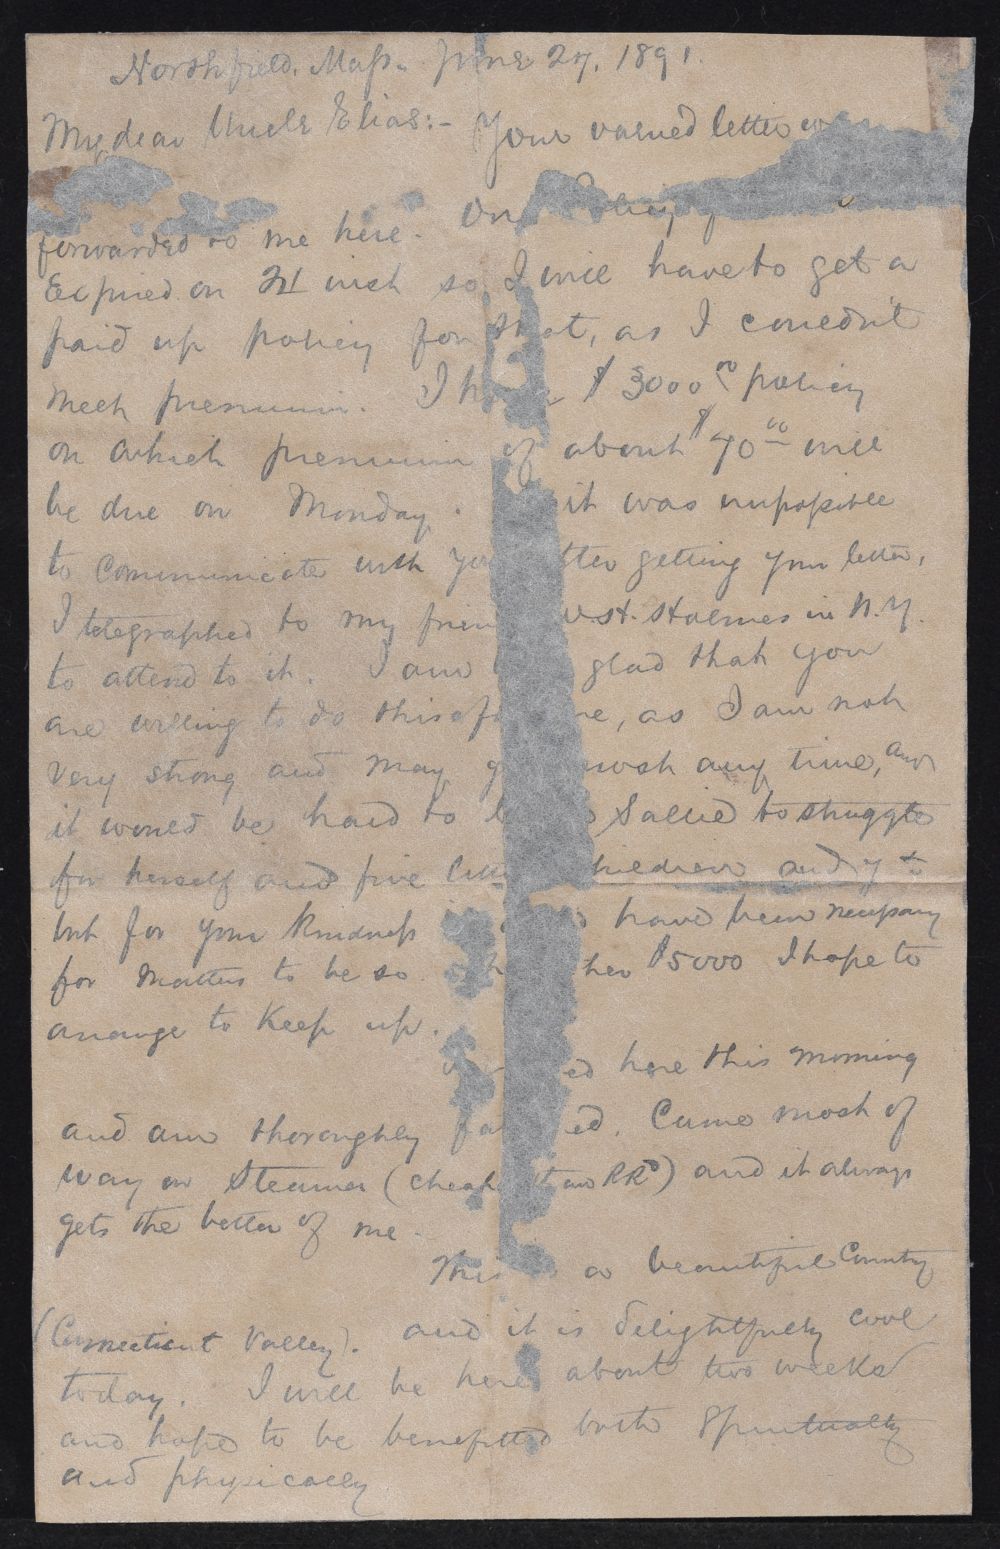 Northfield, Mass. June 27, 1891.
My dear Uncle Elias:- Your valued letter was
forwarded to me here. One Policy
Expired on 21 inst so I will have to get a
paid up policy for that, as I couldn't
meet premium. I have $3000 00 policy
on which premium of about $70 00 will
be due on Monday. it was impossible
to communicate with you after getting your letter,
I telegraphed to my friend St. Holmes in N.Y.
to attend to it. I am glad that you
are willing to do this, as I am not
very strong and may any time, and
it would be hard to Sallie to struggle
for herself and five little children and yet
but for your kindness have been necessary
for matters to be so. $5000 I hope to
arrange to keep up.
here this morning
and am thoroughly. Came most of
way on Steamer (cheaper than RR) and it always
gets the better of me.
This is a beautiful Country
(Connecticut Valley). and it is delightfully cool
today. I will be here about two weeks
and hope to be benefitted both Spiritually
and physically